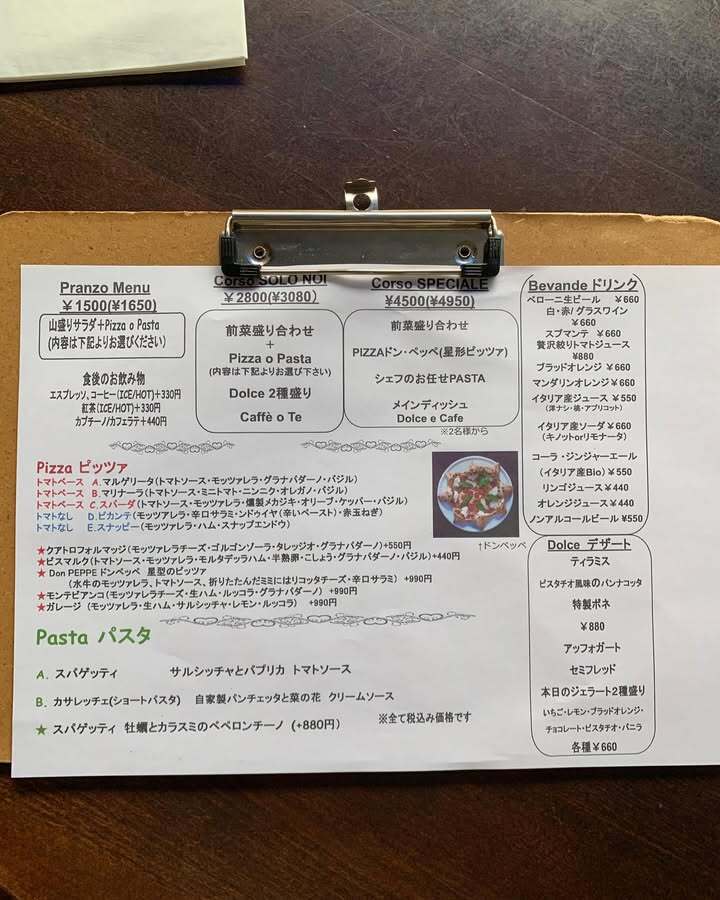 Pranzo Menu
¥1500(¥1650)
山盛りサラダ+Pizza o Pasta
(内容は下記よりお選びください)
食後のお飲み物
エスプレッソ、コーヒー(ICE/HOT)+330円
紅茶(ICE/HOT)+330円
カプチーノ/カフェラテ+440円
Corso SOLO NOI
¥2800(¥3080)
前菜盛り合わせ
+
Pizza o Pasta
(内容は下記よりお選び下さい)
Dolce 2種盛り
Caffè o Te
Corso SPECIALE
¥4500(¥4950)
前菜盛り合わせ
PIZZAドン・ペッペ(星形ピッツァ)
シェフのお任せPASTA
メインディッシュ
Dolce e Cafe
※2名様から
Bevande ドリンク
ペローニ生ビール ¥660
白・赤/グラスワイン
¥660
スプマンテ ¥660
贅沢絞りトマトジュース
¥880
ブラッドオレンジ ¥660
マンダリンオレンジ¥660
イタリア産ジュース ¥550
(洋ナシ・桃・アプリコット)
イタリア産ソーダ¥660
(キノットorリモナータ)
コーラ・ジンジャーエール
(イタリア産Bio)¥550
リンゴジュース¥440
オレンジジュース¥440
ノンアルコールビール ¥550
Pizza ピッツァ
トマトベース A.マルゲリータ(トマトソース・モッツァレラ・グラナパダーノ・バジル)
トマトベース B.マリナーラ(トマトソース・ミニトマト・ニンニク・オレガノ・バジル)
トマトベース C.スパーダ(トマトソース・モッツァレラ・燻製メカジキ・オリーブ・ケッパー・バジル)
トマトなし D.ピカンテ(モッツァレラ・辛口サラミ・ンドゥイヤ(辛いペースト)・赤玉ねぎ)
トマトなし E.スナッピー(モッツァレラ・ハム・スナップエンドウ)
↑ドンペッペ
★クアトロフォルマッジ(モッツァレラチーズ・ゴルゴンゾーラ・タレッジオ・グラナパダーノ)+550円
★ビスマルク(トマトソース・モッツァレラ・モルタデッラハム・半熟卵・こしょう・グラナパダーノ・バジル)+440円
★Don PEPPE ドンペッペ 星型のピッツァ
(水牛のモッツァレラ、トマトソース、折りたたんだミミにはリコッタチーズ・辛口サラミ) +990円
★モンテビアンコ(モッツァレラチーズ・生ハム・ルッコラ・グラナパダーノ) +990円
★ガレージ (モッツァレラ・生ハム・サルシッチャ・レモン・ルッコラ) +990円
Pasta パスタ
A. スパゲッティ サルシッチャとパプリカ トマトソース
B. カサレッチェ(ショートパスタ) 自家製パンチェッタと菜の花 クリームソース
★ スパゲッティ 牡蠣とカラスミのペペロンチーノ (+880円)
※全て税込み価格です
Dolce デザート
ティラミス
ピスタチオ風味のパンナコッタ
特製ボネ
¥880
アッフォガート
セミフレッド
本日のジェラート2種盛り
いちご・レモン・ブラッドオレンジ・
チョコレート・ピスタチオ・バニラ
各種¥660